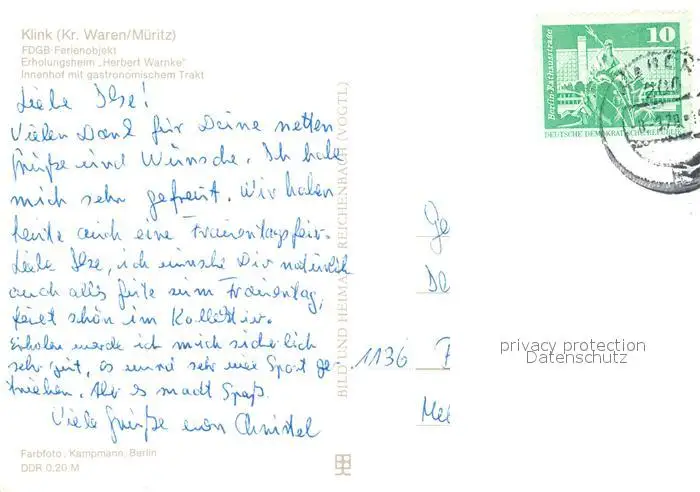 Klink (Kr. Waren/Müritz)
FDGB-Ferienobjekt
Erholungsheim „Herbert Warnke"
Innenhof mit gastronomischem Trakt
Liebe Ilse!
Vielen Dank für Deine netten
Grüße und Wünsche. Ich habe
mich sehr gefreut. Wir haben
heute auch eine Frauentagsfeir.
Liebe Ilse, ich wünsche Dir natürlich
auch alles gute zum Frauentag,
feiert schön im Kollektiv.
Erholen werde ich mich sicherlich
sehr gut, es wird sehr viel Sport ge-
trieben. Aber es macht Spaß.
Viele Grüße von Christel
Farbfoto: Kampmann, Berlin
DDR 0,20 M
BILD UND HEIMAT REICHENBACH (VOGTL)
10
Berlin-Rathausstraße
DEUTSCHE DEMOKRATISCHE REPUBLIK
1136
privacy protection
Datenschutz